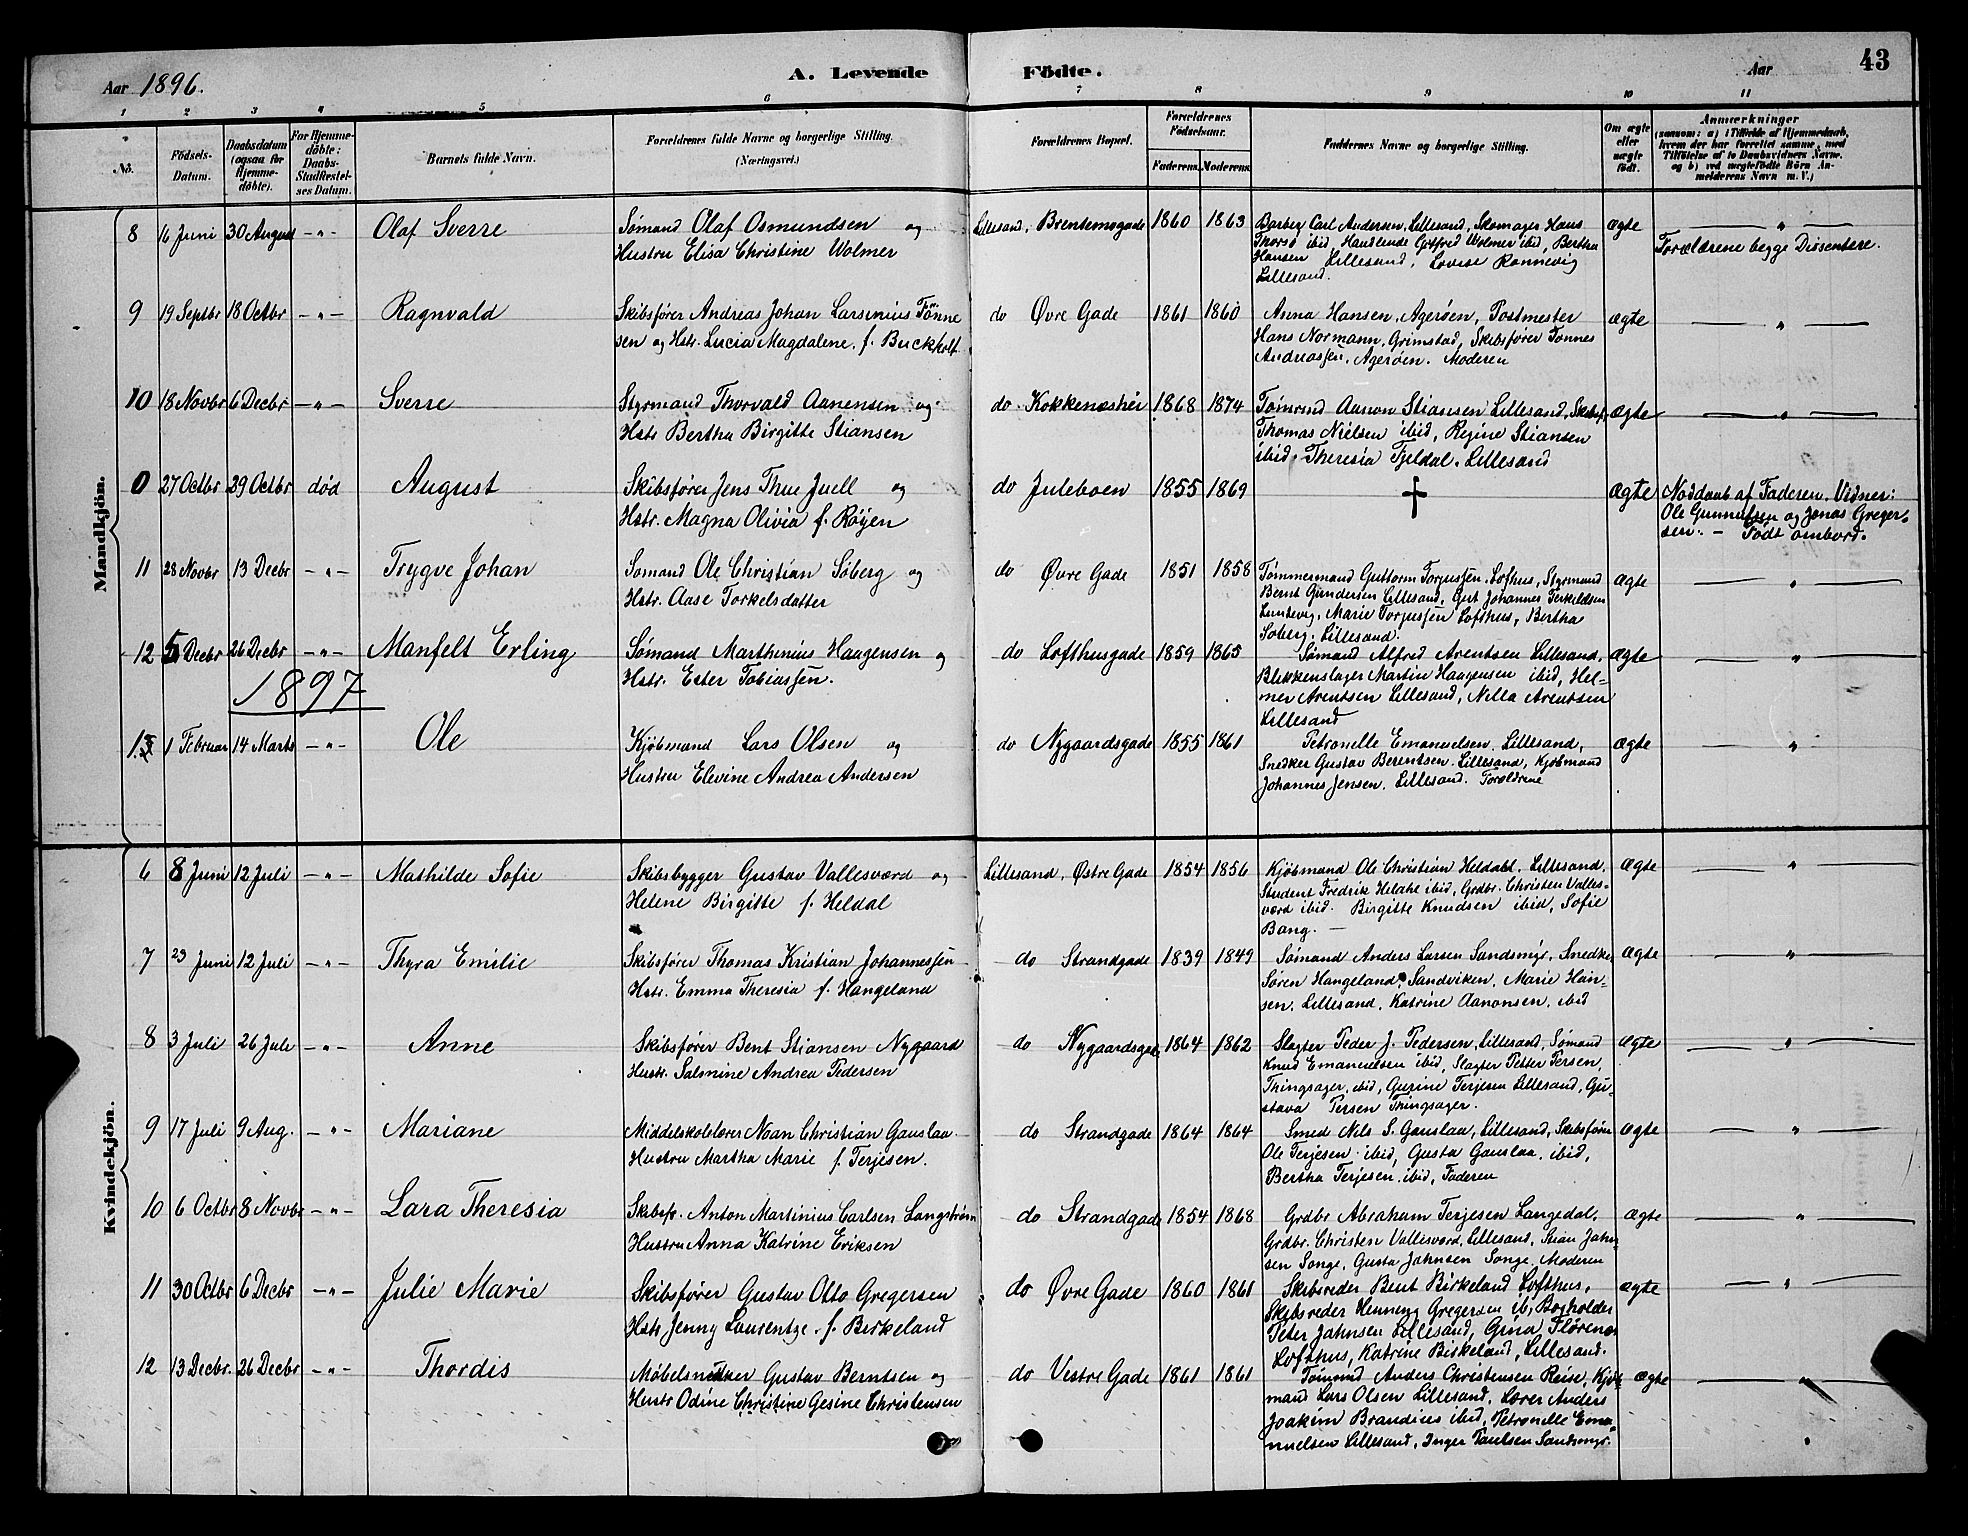 Aar 1896.
A. Levende Födte.
Aar
43
1 2 3 4 5 6 7 8 9 10 11
No.
Födsels-Datum.
Daabsdatum (ogsaa for Hjemme-döbte).
For Hjemme-döbte: Daabs-Stadfæstel-ses Datum.
Barnets fulde Navn.
Forældrenes fulde Navne og borgerlige Stilling. (Næringsvei.)
Forældrenes Bopæl.
Forældrenes Födselsaar.
Faderens. Moderens.
Faddernes Navne og borgerlige Stilling.
Om ægte eller uægte födt.
Anmærkninger
(saasom: a) i Tilfælde af Hjemmedaab,
hvem der har forrettet samme, med
Tilföielse af to Daabsvidners Navne,
og b) ved uægtefödte Börn An-
melderens Navn m. V.)
Mandkjön.
8 16 Juni 30 August -"- Olaf Sverre
Sømand Olaf Osmundsen og
Hustru Elisa Christine Wolmer
Lillesand, Brentemogade 1860 1863
Barber Carl Andersen, Lillesand, Skomager Hans
Thorsø ibid, Handlende Gotfred Wolmer ibid, Bertha
Hansen Lillesand, Lovise Rønnevig
Lillesand.
ægte
Forældrene begge Dissentere.
9 19 Septbr 18 Octbr -"- Ragnvald
Skibsfører Andreas Johan Larsinius Tønne
sen og Hstr. Lucia Magdalene, f. Buckholt
do Øvre Gade 1861 1860
Anna Hansen, Agerøen, Postmester
Hans Normann, Grimstad, Skibsfører Tønnes
Andreassen, Agerøen. Moderen
ægte "
10 18 Novbr 6 Decbr -"- Sverre
Styrmand Thorvald Aanensen og
Hstr Bertha Birgitte Stiansen
do Kokkenæshei 1868 1874
Tømrmd Aanon Stiansen Lillesand, Skibsf.
Thomas Nielsen ibid, Regine Stiansen
ibid. Theresia Fjeldal. Lillesand
ægte "
0 27 Octbr 29 Octbr død August
Skibsfører Jens Thue Juell og
Hstr. Magna Olivia f. Røyen
do Juleboen 1855 1869
†
ægte
Nøddaab af Faderen. Vidner:
Ole Gunnufsen og Jonas Greger-
sen. - Født ombord.
11 28 Novbr 13 Decbr -"- Trygve Johan
Sømand Ole Christian Søberg og
Hstr. Aase Torkelsdatter
do Øvre Gade 1851 1858
Tømmermand Guttorm Torjussen. Lofthus, Styrmand
Bernt Gundersen Lillesand, Grt Johannes Terkildsen
Luntevig, Marie Torjussen Lofthus, Bertha
Søberg, Lillesand.
ægte "
12 5 Decbr 26 Decbr -"- Manfelt Erling
Sømand Marthinius Haagensen og
Hstr. Ester Tobiassen.
do Lofthusgade 1859 1865
Sømand Alfred Arentsen Lillesand,
Blikkenslager Martin Haagensen ibid, Hel-
mer Arentsen Lillesand, Nilla Arentsen
Lillesand
ægte "
1897
1. 1 Februar 14 Marts -"- Ole
Kjøbmand Lars Olsen og
Hustru Elevine Andrea Andersen
do Nygaardsgade 1855 1861
Petronelle Emanuelsen. Lillesand,
Snedker Gustav Berentsen. Lillesand, Kjøbmand
Johannes Jensen. Lillesand. Forældrene
ægte "
Kvindekjön.
6 8 Juni 12 Juli -"- Mathilde Sofie
Skibsbygger Gustav Vallesværd og
Helene Birgitte f. Heldal
Lillesand, Østre Gade 1854 1856
Kjøbmand Ole Christian Heldahl. Lillesand.
Student Fredrik ibid, Grdbr. Christen Valles-
værd ibid. Birgitte Knudsen ibid, Sofie
Bang. -
ægte "
7 23 Juni 12 Juli -"- Thyra Emilie
Skibsfører Thomas Kristian Johannessen
Hstr. Emma Theresia f. Hangeland
do Strandgade 1839 1849
Sømand Anders Larsen Sandsmyr, Snedker
Søren Hangeland, Sandviken, Marie Han-
sen, Lillesand, Katrine Aanonsen, ibid
ægte "
8 3 Juli 26 Juli -"- Anne
Skibsfører Bent Stiansen Nygaard
Hustr. Salmine Andrea Pedersen
do Nygaardsgade 1864 1862
Slagter Peder J. Pedersen, Lillesand, Sømand
Knud Emanuelsen ibid, Slagter Petter Persen,
Thingsager, ibid, Gurine Terjesen Lillesand, Gu-
stava Persen Thingsager.
ægte "
9 17 Juli 9 Aug. -"- Mariane
Middelskolelærer Noan Christian Gauslaa.
Hustru Martha Marie f. Terjesen.
do Strandgade 1864 1864
Smed Nils S. Gauslaa, Lillesand, Skibsfører
Ole Terjesen. ibid, Gusta Gauslaa. ibid,
Bertha Terjesen. ibid, Faderen
ægte "
10 6 Octbr 8 Novbr -"- Lara Theresia
Skibsf. Anton Martinius Carlsen Langstrøm
Hustru Anna Katrine Eriksen
do Strandgade 1854 1868
Grdbr Abraham Terjesen Langedal,
Grdbr. Christen Vallesværd, Lillesand, Stian Jahn-
sen Songe, Gusta Jahnsen Songe, Moderen
ægte "
11 30 Octbr 6 Decbr -"- Julie Marie
Skibsfører Gustav Otto Gregersen
Hstr Jenny Laurentze. f. Birkeland
do Øvre Gade 1860 1861
Skibsreder Bent Birkeland Lofthus,
Skibsreder Henning Gregersen ib, Bogholder
Peter Jahnsen Lillesand, Gina Florenes
Lofthus, Katrine Birkeland, Lillesand.
ægte "
12 13 Decbr. 26 Decbr -"- Thordis
Møbelsnedker Gustav Berntsen og
Hustr Odine Christine Gesine Christensen
do Vestre Gade 1861 1861
Tømmd Anders Christensen Reise, Kjøb-
mand Lars Olsen Lillesand, Lærer Anders
Joakim Brandsies ibid, Petronelle Ema-
nuelsen Lillesand, Inger Paulsen Sandsmyr.
ægte "